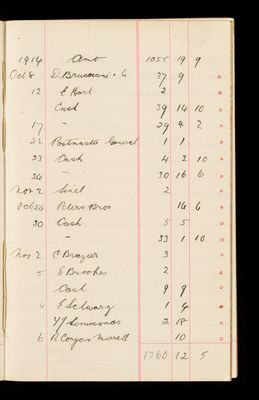 1914 Amt 1055 19 9
Oct 8 D. 6 37 9
12 E Hart 2
Cash 39 14 10
17 " 29 4 2
22 Postmaster General 1 1
23 Cash 4 2 10
24 — 30 16 6
Nov 2 2
Oct 26 Peters Bros 16 6
30 Cash 5 5
— 33 1 10
Nov 2 C Brazier 3
5 S Brookes 2
Cash 9 9
E Schwarz 1 4
Simmonds 2 18
6 B Conyers Morrell 10
1260 12 5